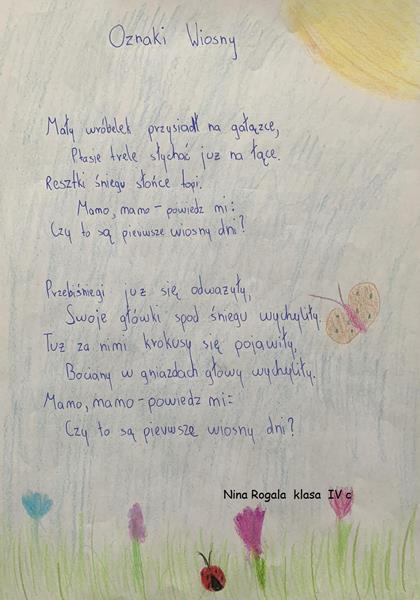 Oznaki Wiosny
Mały wróbelek przysiadł na gałązce,
Ptasie trele słychać już na łące.
Resztki śniegu słońce topi.
Mamo, mamo - powiedz mi:
Czy to są pierwsze wiosny dni?
Przebiśniegi już się odważyły,
Swoje główki spod śniegu wychyliły.
Tuż za nimi krokusy się pojawiły,
Bociany w gniazdach głowy wychyliły.
Mamo, mamo - powiedz mi:
Czy to są pierwsze wiosny dni?
Nina Rogala klasa IV c